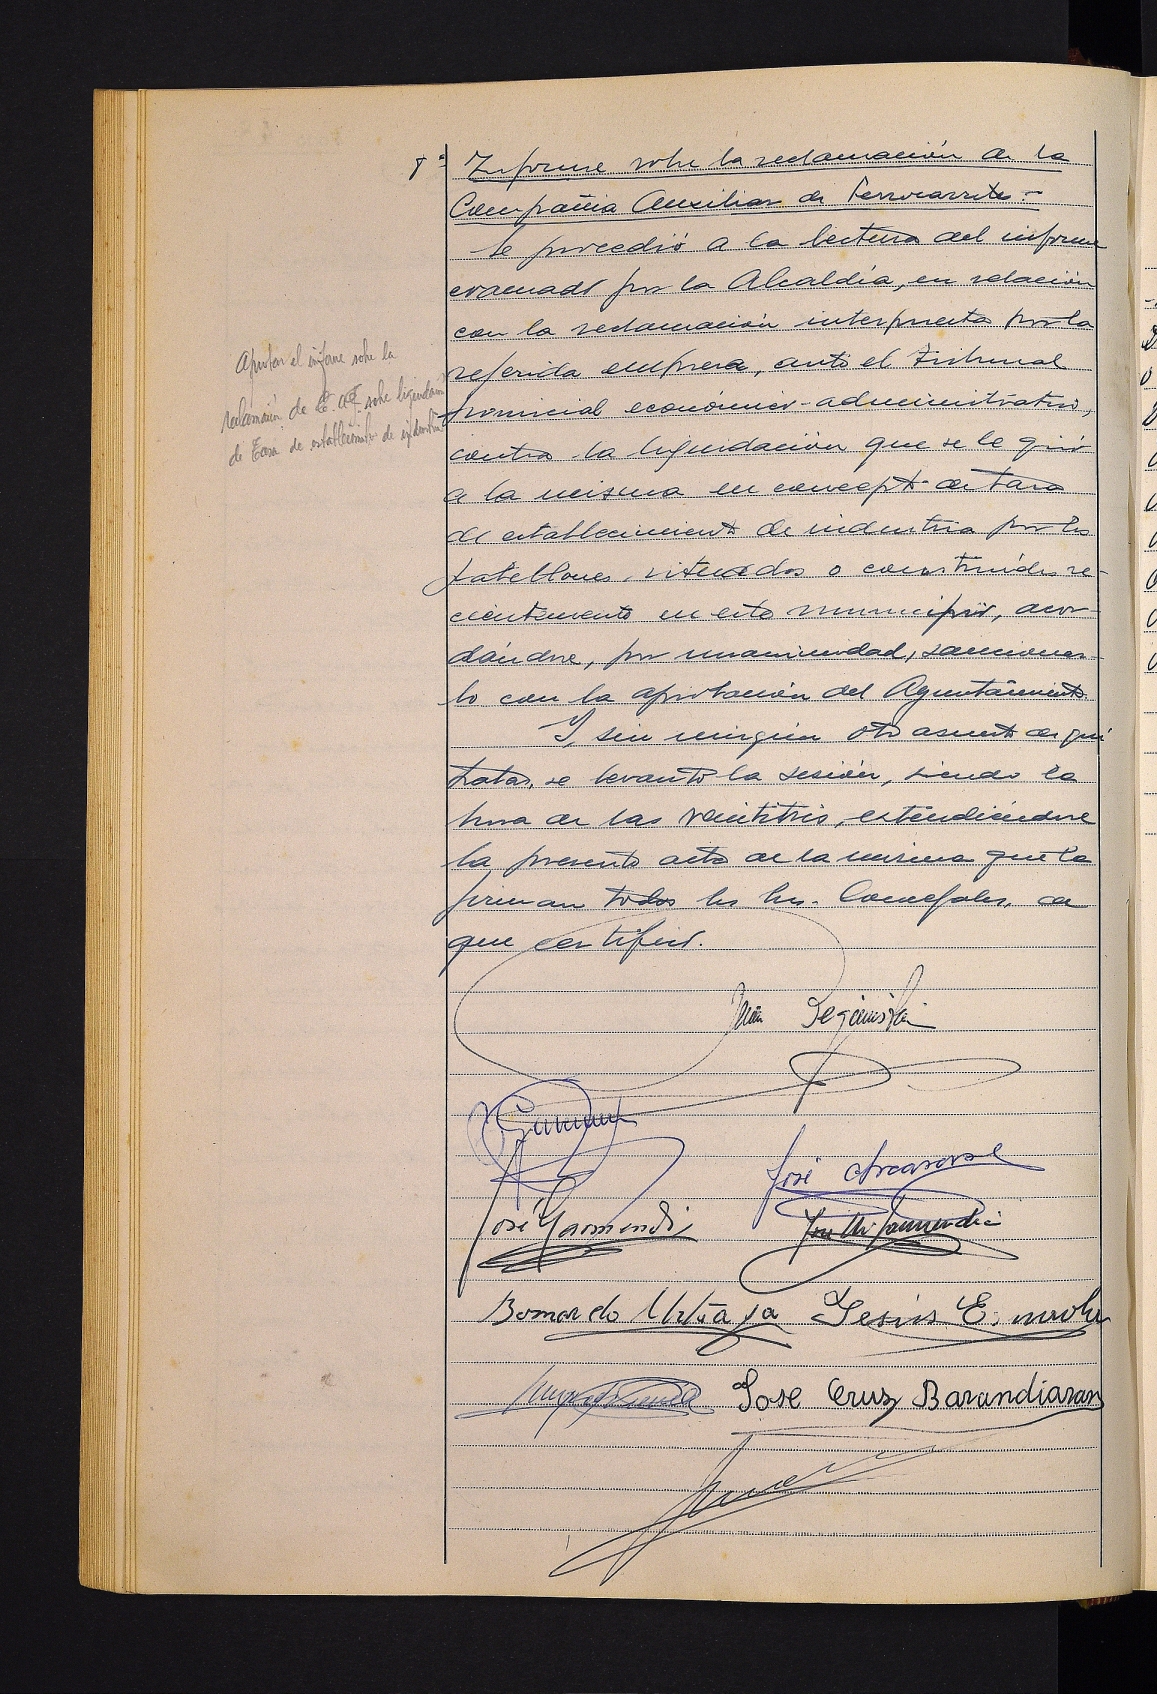 8º Informe sobre la reclamación de la
Compañia Auxiliar de Ferrocarriles.=
Se procedió a la lectura del informe
evacuado por la Alcaldía, en relación
con la reclamación interpuesta por la
referida empresa, ante el Tribunal
provincial económico-administrativo,
contra la liquidación que se le giró
a la misma en concepto de tasa
de establecimiento de industria por los
pabellones situados o construidos re-
cientemente en este municipio, acor-
dándose, por unanimidad, sancionar-
lo con la aprobación del Ayuntamiento.
Y, sin ningún otro asunto de que
tratar, se levantó la sesión, siendo la
hora de las veintitrés, extendiéndose
la presente acta de la misma que la
firman todos los Srs. Concejales, de
que certifico.
Aprobar el informe sobre la
reclamación de C.A.F. sobre liquidación
de Tasa de establecimto de industria
José
José Garmendi
Bernardo Urteaga Jesús
Jose Cruz Barandiaran